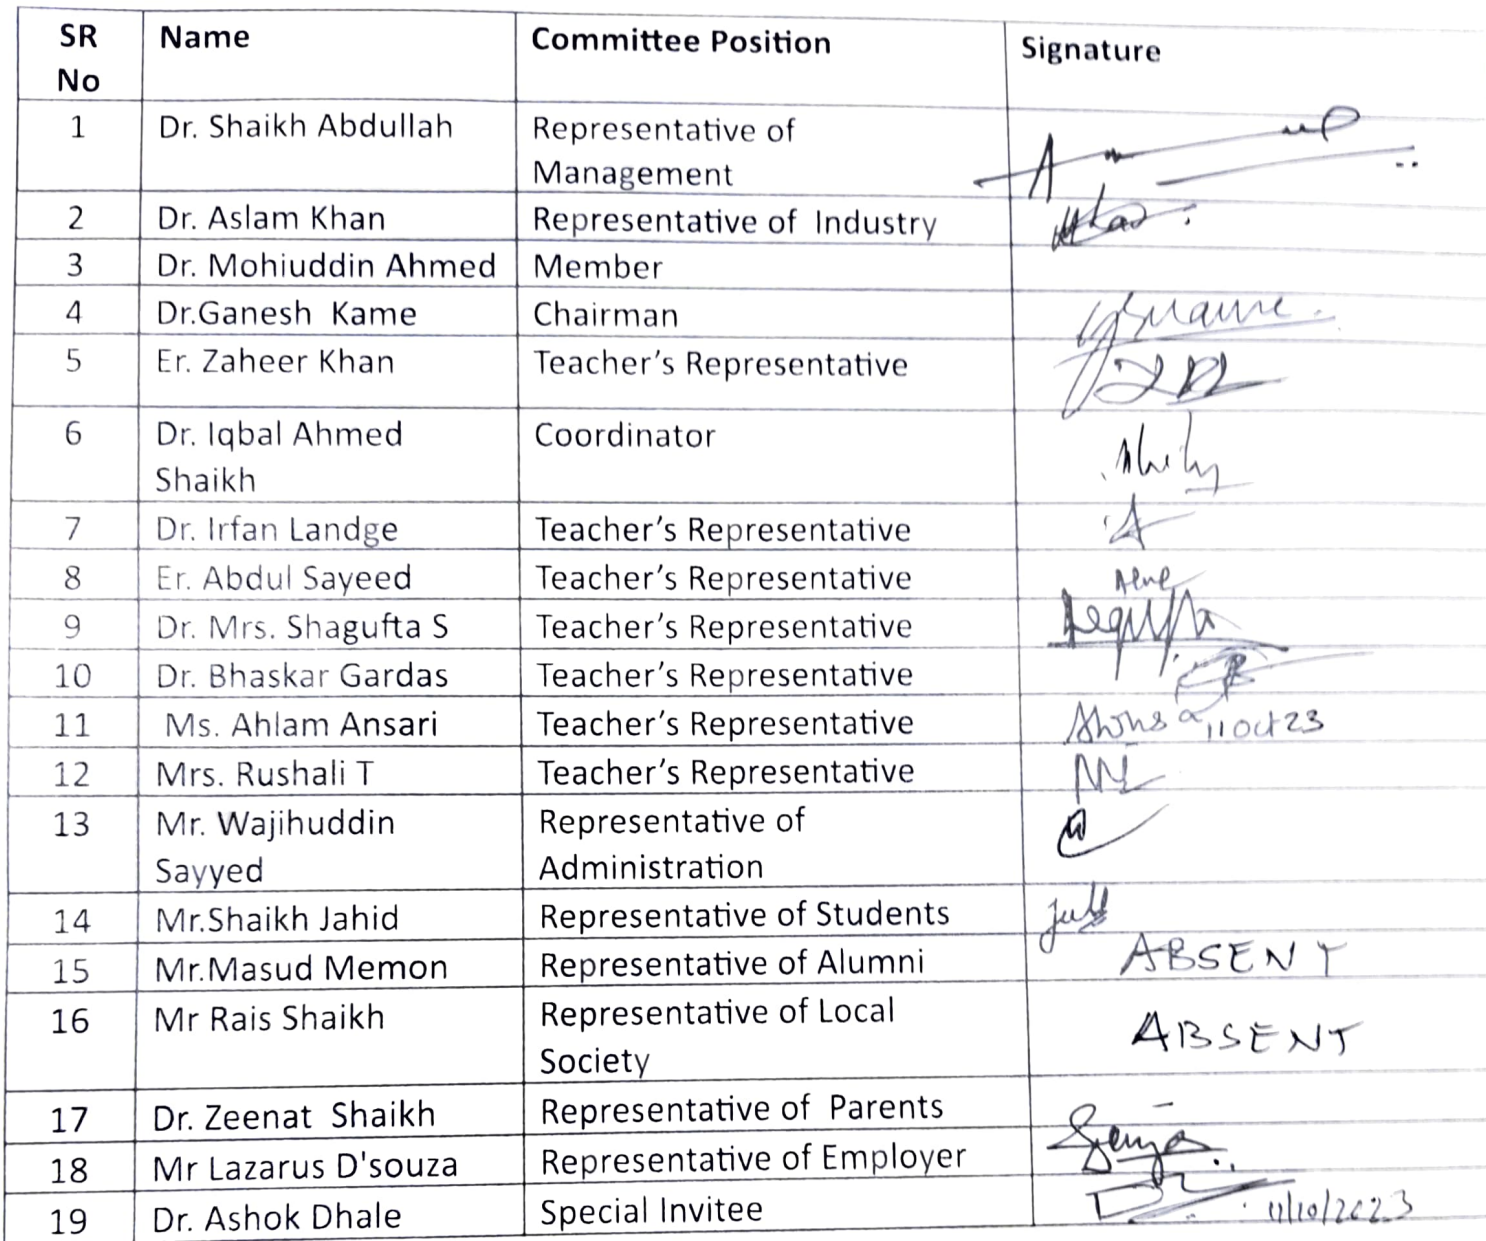 SR No Name Committee Position Signature
1 Dr. Shaikh Abdullah Representative of Management
2 Dr. Aslam Khan Representative of Industry
3 Dr. Mohiuddin Ahmed Member
4 Dr.Ganesh Kame Chairman
5 Er. Zaheer Khan Teacher’s Representative
6 Dr. Iqbal Ahmed Shaikh Coordinator
7 Dr. Irfan Landge Teacher’s Representative
8 Er. Abdul Sayeed Teacher’s Representative
9 Dr. Mrs. Shagufta S Teacher’s Representative
10 Dr. Bhaskar Gardas Teacher’s Representative
11 Ms. Ahlam Ansari Teacher’s Representative 11 Oct 23
12 Mrs. Rushali T Teacher’s Representative
13 Mr. Wajihuddin Sayyed Representative of Administration
14 Mr.Shaikh Jahid Representative of Students
15 Mr.Masud Memon Representative of Alumni ABSENT
16 Mr Rais Shaikh Representative of Local Society ABSENT
17 Dr. Zeenat Shaikh Representative of Parents
18 Mr Lazarus D'souza Representative of Employer
19 Dr. Ashok Dhale Special Invitee 11/10/2023